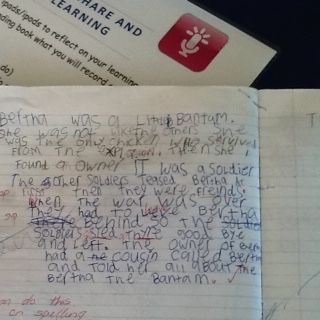 SHARE AND
LEARNING
ipods/ipods to reflect on your learning
ding book what you will record
do)
Bertha was a Little Bantam.
She was not like the others She
was the only chicken who survived
From The Explosion. Then she
Found a Owner IT was a Soldier
The other Soldiers Teased Bertha At
First Then They were friends
When The war was over
They had to Leave Bertha
behind so The Soldier
Soldiers said There good Bye
and left. The owner of Bertha
had a cousin called Bertha
and Told her all about The
Bertha The Bantam.
T
can do this
on spelling